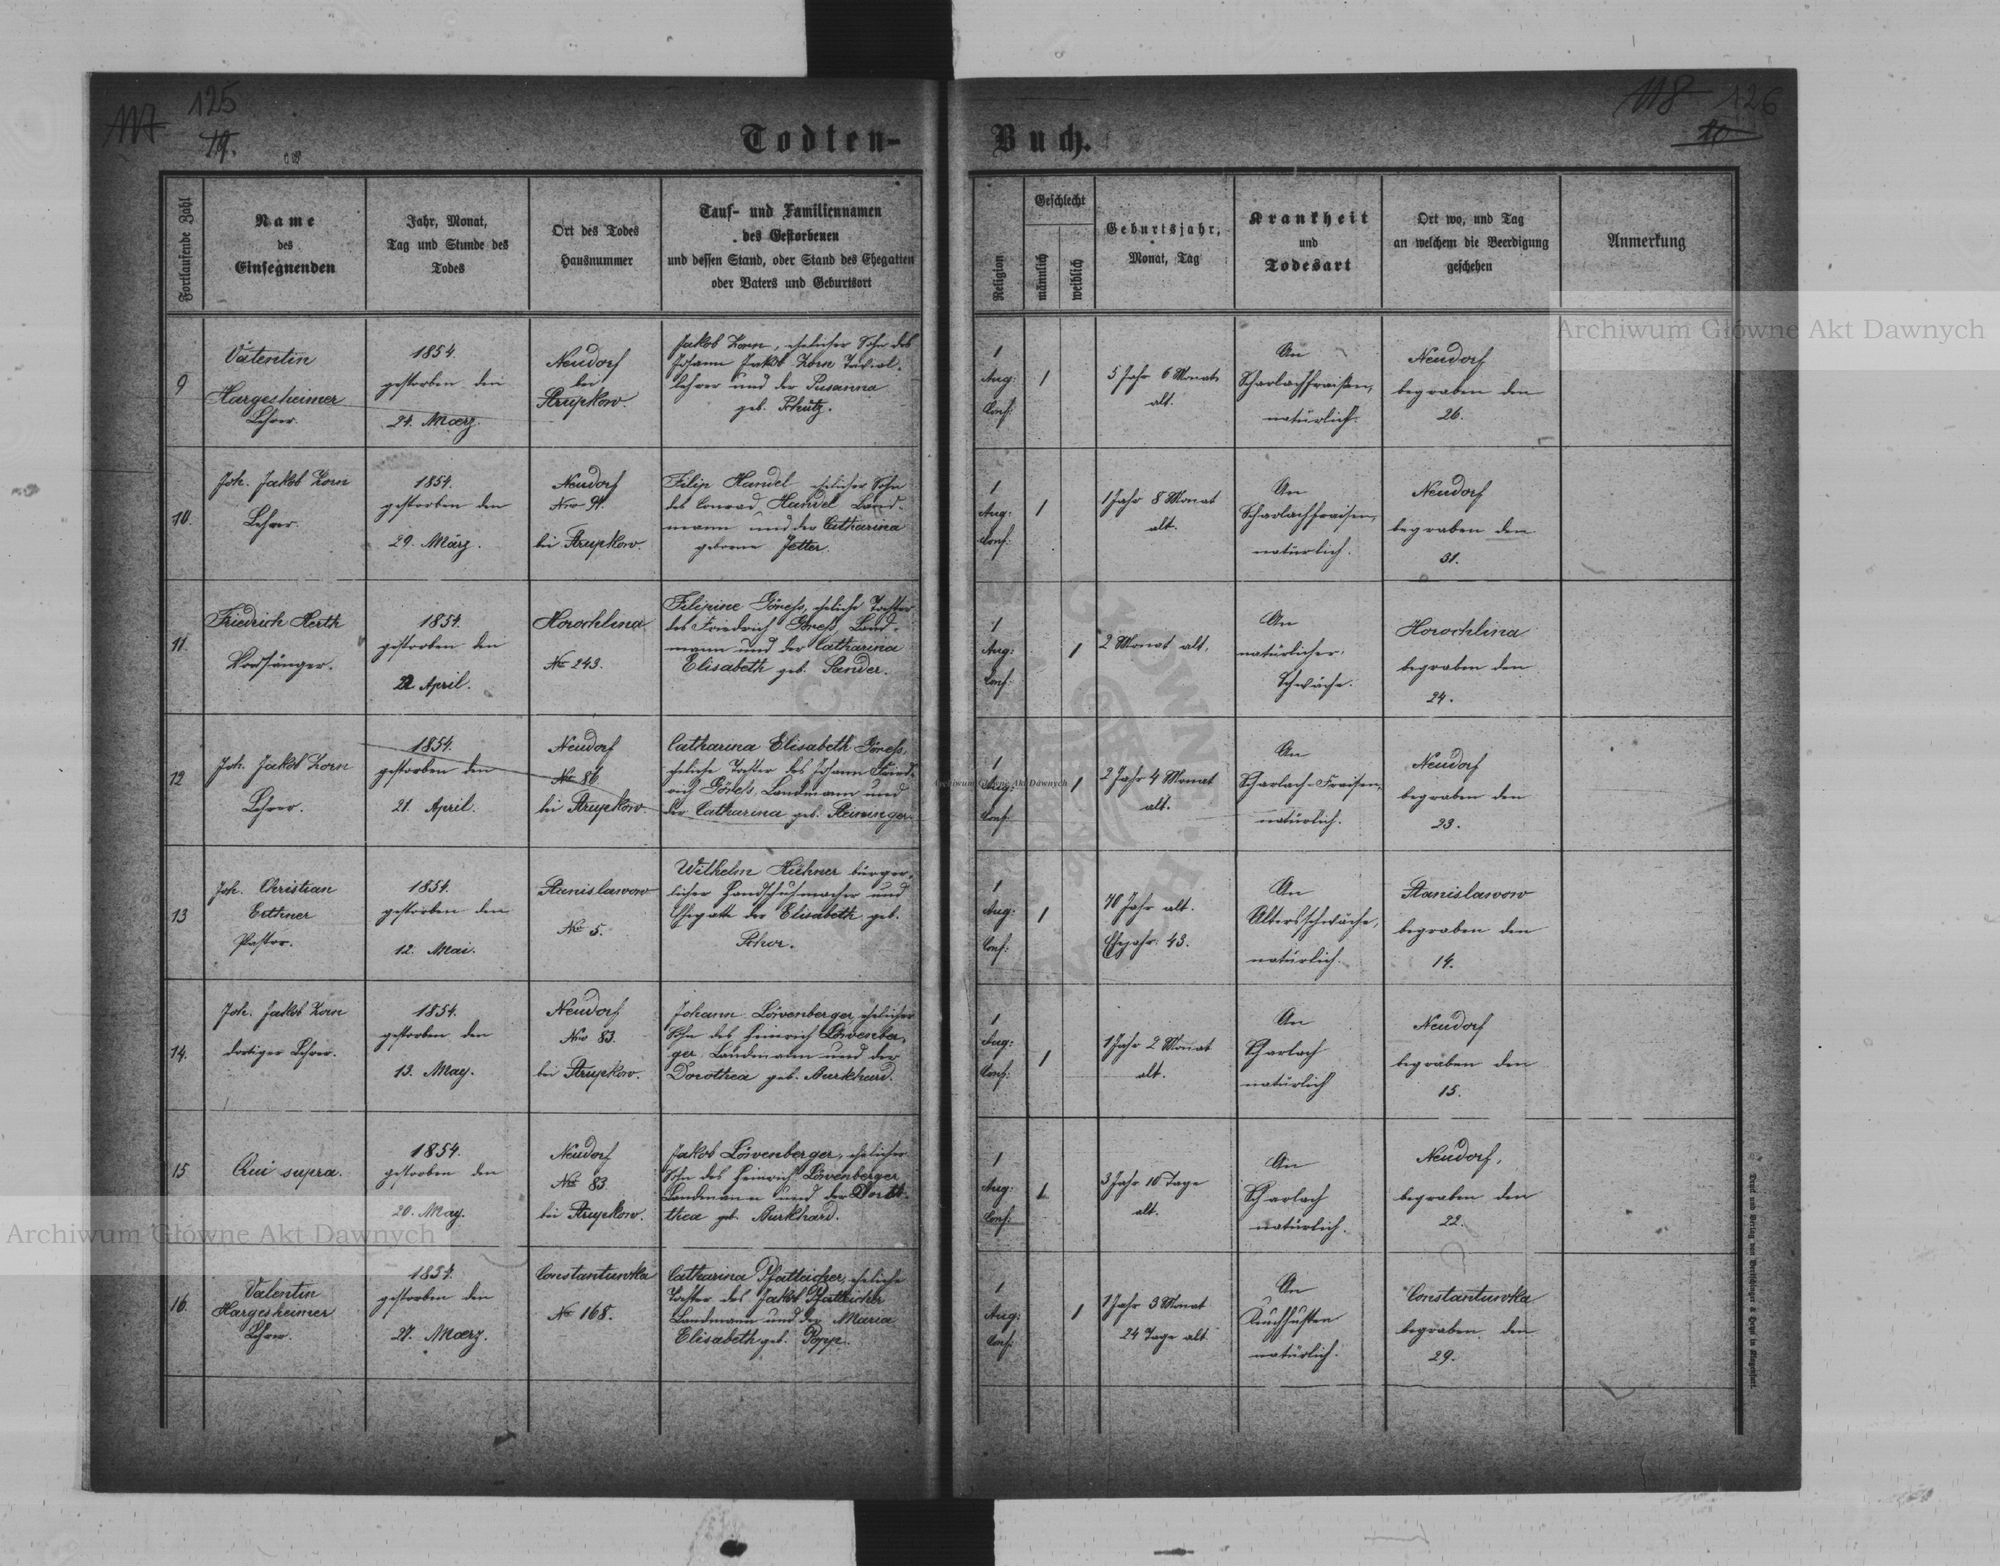 117 125
19.
118 126
20
Todten-Buch.
Fortlaufende Zahl
Name
des
Einsegnenden
Jahr, Monat,
Tag und Stunde des
Todes
Ort des Todes
Hausnummer
Tauf- und Familiennamen
des Gestorbenen
und dessen Stand, oder Stand des Ehegatten
oder Vaters und Geburtsort
Religion
Geschlecht
männlich
weiblich
Geburtsjahr,
Monat, Tag
Krankheit
und
Todesart
Ort wo, und Tag
an welchem die Beerdigung
geschehen
Anmerkung
9
Valentin
Hargesheimer
Lehrer.
1854.
gestorben den
24. Maerz.
Neudorf
bei
Strupkow.
Jakob Zorn, ehelicher Sohn des
Johann Jakob Zorn Trivial-
lehrer und der Susanna
geb. Schütz.
1
Aug:
Conf:
1
5 Jahr 6 Monate
alt.
An
Scharlachfraißen,
natürlich.
Neudorf
begraben den
26.
10.
Joh. Jakob Zorn
Lehrer.
1854.
gestorben den
29. März.
Neudorf
Nro 91.
bei Strupkow.
Filip Handel ehelicher Sohn
des Conrad Handel Land-
mann und der Catharina
geborne Jetter.
1
Aug:
Conf:
1
1 Jahr 8 Monat
alt.
An
Scharlachfraisen,
natürlich.
Neudorf
begraben den
31.
11.
Friedrich Herth
Vorsänger.
1854.
gestorben den
22 April.
Horochlina
No 243.
Filipine Göress, eheliche Tochter
des Friedrich Göress, Land-
mann und der Catharina
Elisabeth geb. Sander.
1
Aug:
Conf:
1
2 Monat alt.
An
natürlicher
Schwäche.
Horochlina
begraben den
24.
12
Joh. Jakob Zorn
Lehrer.
1854.
gestorben den
21. April.
Neudorf
No 86
bei Strupkow.
Catharina Elisabeth Göress,
eheliche Tochter des Johann Fried-
rich Göress, Landmann und
der Catharina geb. Steininger.
1
Aug:
Conf:
1
2 Jahr 4 Monat
alt.
An
Scharlach-Fraisen,
natürlich.
Neudorf
begraben den
23.
13
Joh. Christian
Erthner
Pastor.
1854.
gestorben den
12. Mai.
Stanislawow
No 5.
Wilhelm Hühner bürger-
licher Handschuhmacher und
Ehegatte der Elisabeth geb.
Schor.
1
Aug:
Conf:
1
70 Jahr alt.
Ehejahr: 43.
An
Altersschwäche,
natürlich.
Stanislawow
begraben den
14.
14.
Joh. Jakob Zorn
dortiger Lehrer.
1854.
gestorben den
13. May.
Neudorf
Nro 83.
bei Strupkow.
Johann Löwenberger, ehelicher
Sohn des Heinrich Löwenber-
ger Landmann und der
Dorothea geb. Burkhard.
1
Aug:
Conf:
1
1 Jahr 2 Monat
alt.
An
Scharlach
natürlich
Neudorf
begraben den
15.
15
Qui supra.
1854.
gestorben den
20. May.
Neudorf
No 83
bei Strupkow.
Jakob Löwenberger, ehelicher
Sohn des Heinrich Löwenberger
Landmann und der Doro-
thea geb. Burkhard.
1
Aug:
Conf:
1
3 Jahr 10 Tage
alt.
An
Scharlach
natürlich.
Neudorf,
begraben den
22.
16.
Valentin
Hargesheimer
Lehrer.
1854.
gestorben den
27. Maerz.
Constantuvka
No 168.
Catharina Pfatteicher, eheliche
Tochter des Jakob Pfatteicher
Landmann und der Maria
Elisabeth geb. Popp.
1
Aug:
Conf:
1
1 Jahr 3 Monat
24 Tage alt
An
Keuchhusten
natürlich.
Constantuvka
begraben den
29.
Archiwum Główne Akt Dawnych
Archiwum Główne Akt Dawnych
Archiwum Główne Akt Dawnych